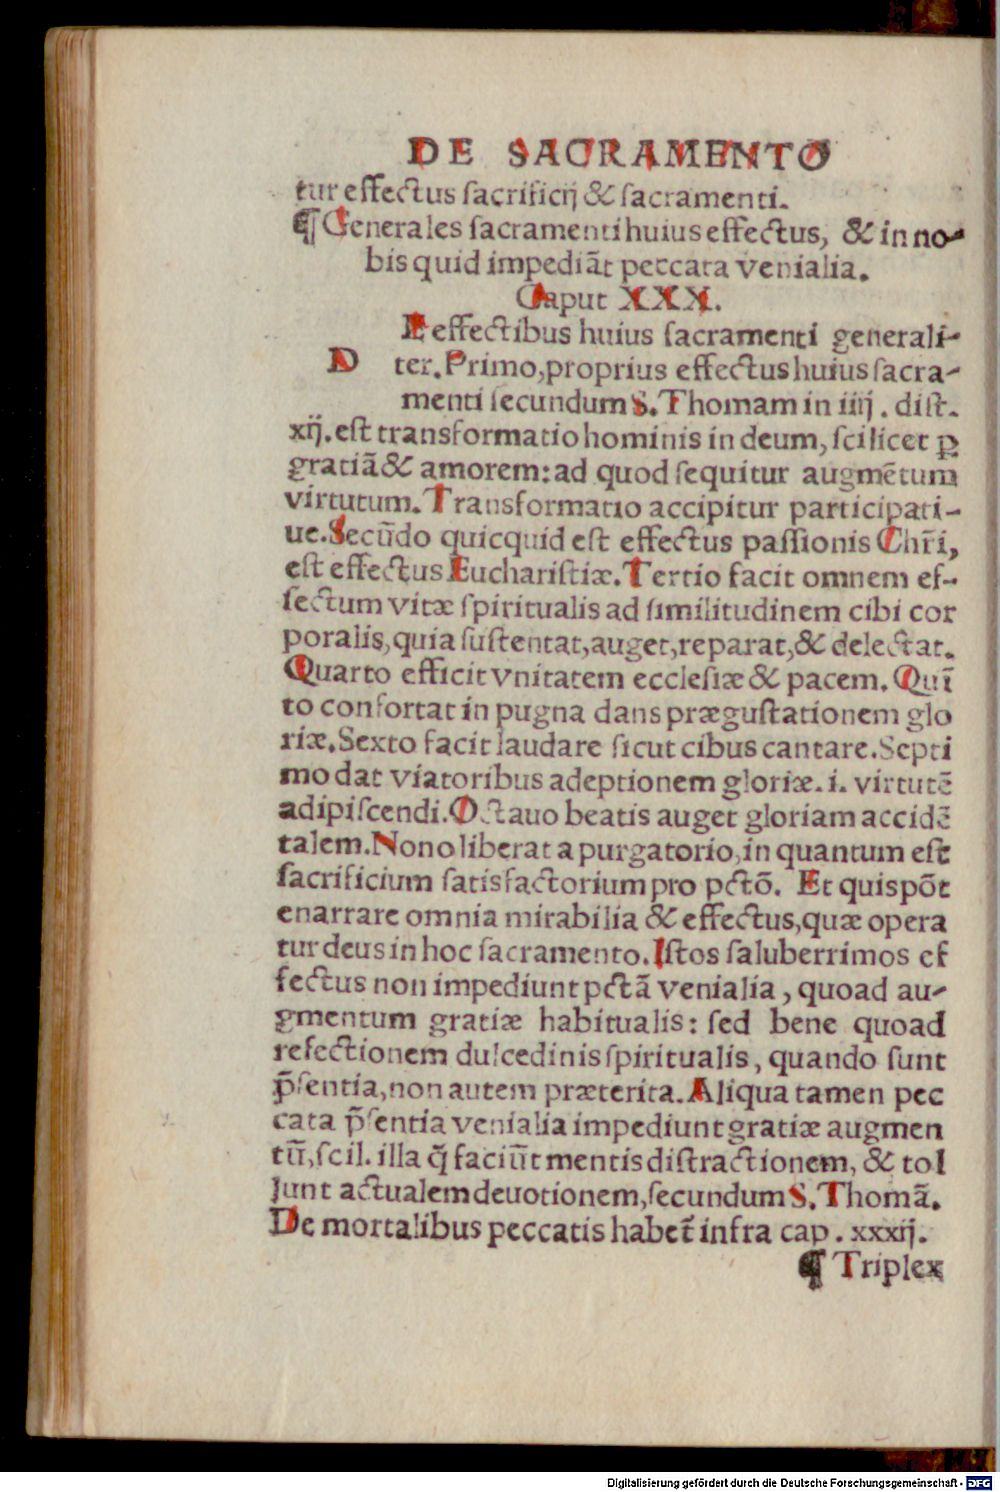 DE SACRAMENTO
tur effectus sacrificij & sacramenti.
¶ Generales sacramenti huius effectus, & in no-
bis quid impediãt peccata venialia.
Caput XXX.
E effectibus huius sacramenti generali-
D ter. Primo, proprius effectus huius sacra-
menti secundum S. Thomam in iiij. dist.
xij. est transformatio hominis in deum, scilicet ꝑ
gratiã & amorem: ad quod sequitur augmẽtum
virtutum. Transformatio accipitur participati-
ue. Secũdo quicquid est effectus passionis Chr̃i,
est effectus Eucharistiæ. Tertio facit omnem ef-
fectum vitæ spiritualis ad similitudinem cibi cor
poralis, quia sustentat, auget, reparat, & delectat.
Quarto efficit vnitatem ecclesiæ & pacem. Quĩ
to confortat in pugna dans prægustationem glo
riæ. Sexto facit laudare sicut cibus cantare. Septi
mo dat viatoribus adeptionem gloriæ. i. virtutẽ
adipiscendi. Octauo beatis auget gloriam accidẽ
talem. Nono liberat a purgatorio, in quantum est
sacrificium satisfactorium pro pctõ. Et quis põt
enarrare omnia mirabilia & effectus, quæ opera
tur deus in hoc sacramento. Istos saluberrimos ef
fectus non impediunt pctã venialia, quoad au-
gmentum gratiæ habitualis: sed bene quoad
refectionem dulcedinis spiritualis, quando sunt
p̃sentia, non autem præterita. Aliqua tamen pec
cata p̃sentia venialia impediunt gratiæ augmen
tũ, scil. illa q̃ faciũt mentis distractionem, & tol
lunt actualem deuotionem, secundum S. Thomã.
De mortalibus peccatis habet̃ infra cap. xxxij.
¶ Triplex
Digitalisierung gefördert durch die Deutsche Forschungsgemeinschaft - DFG